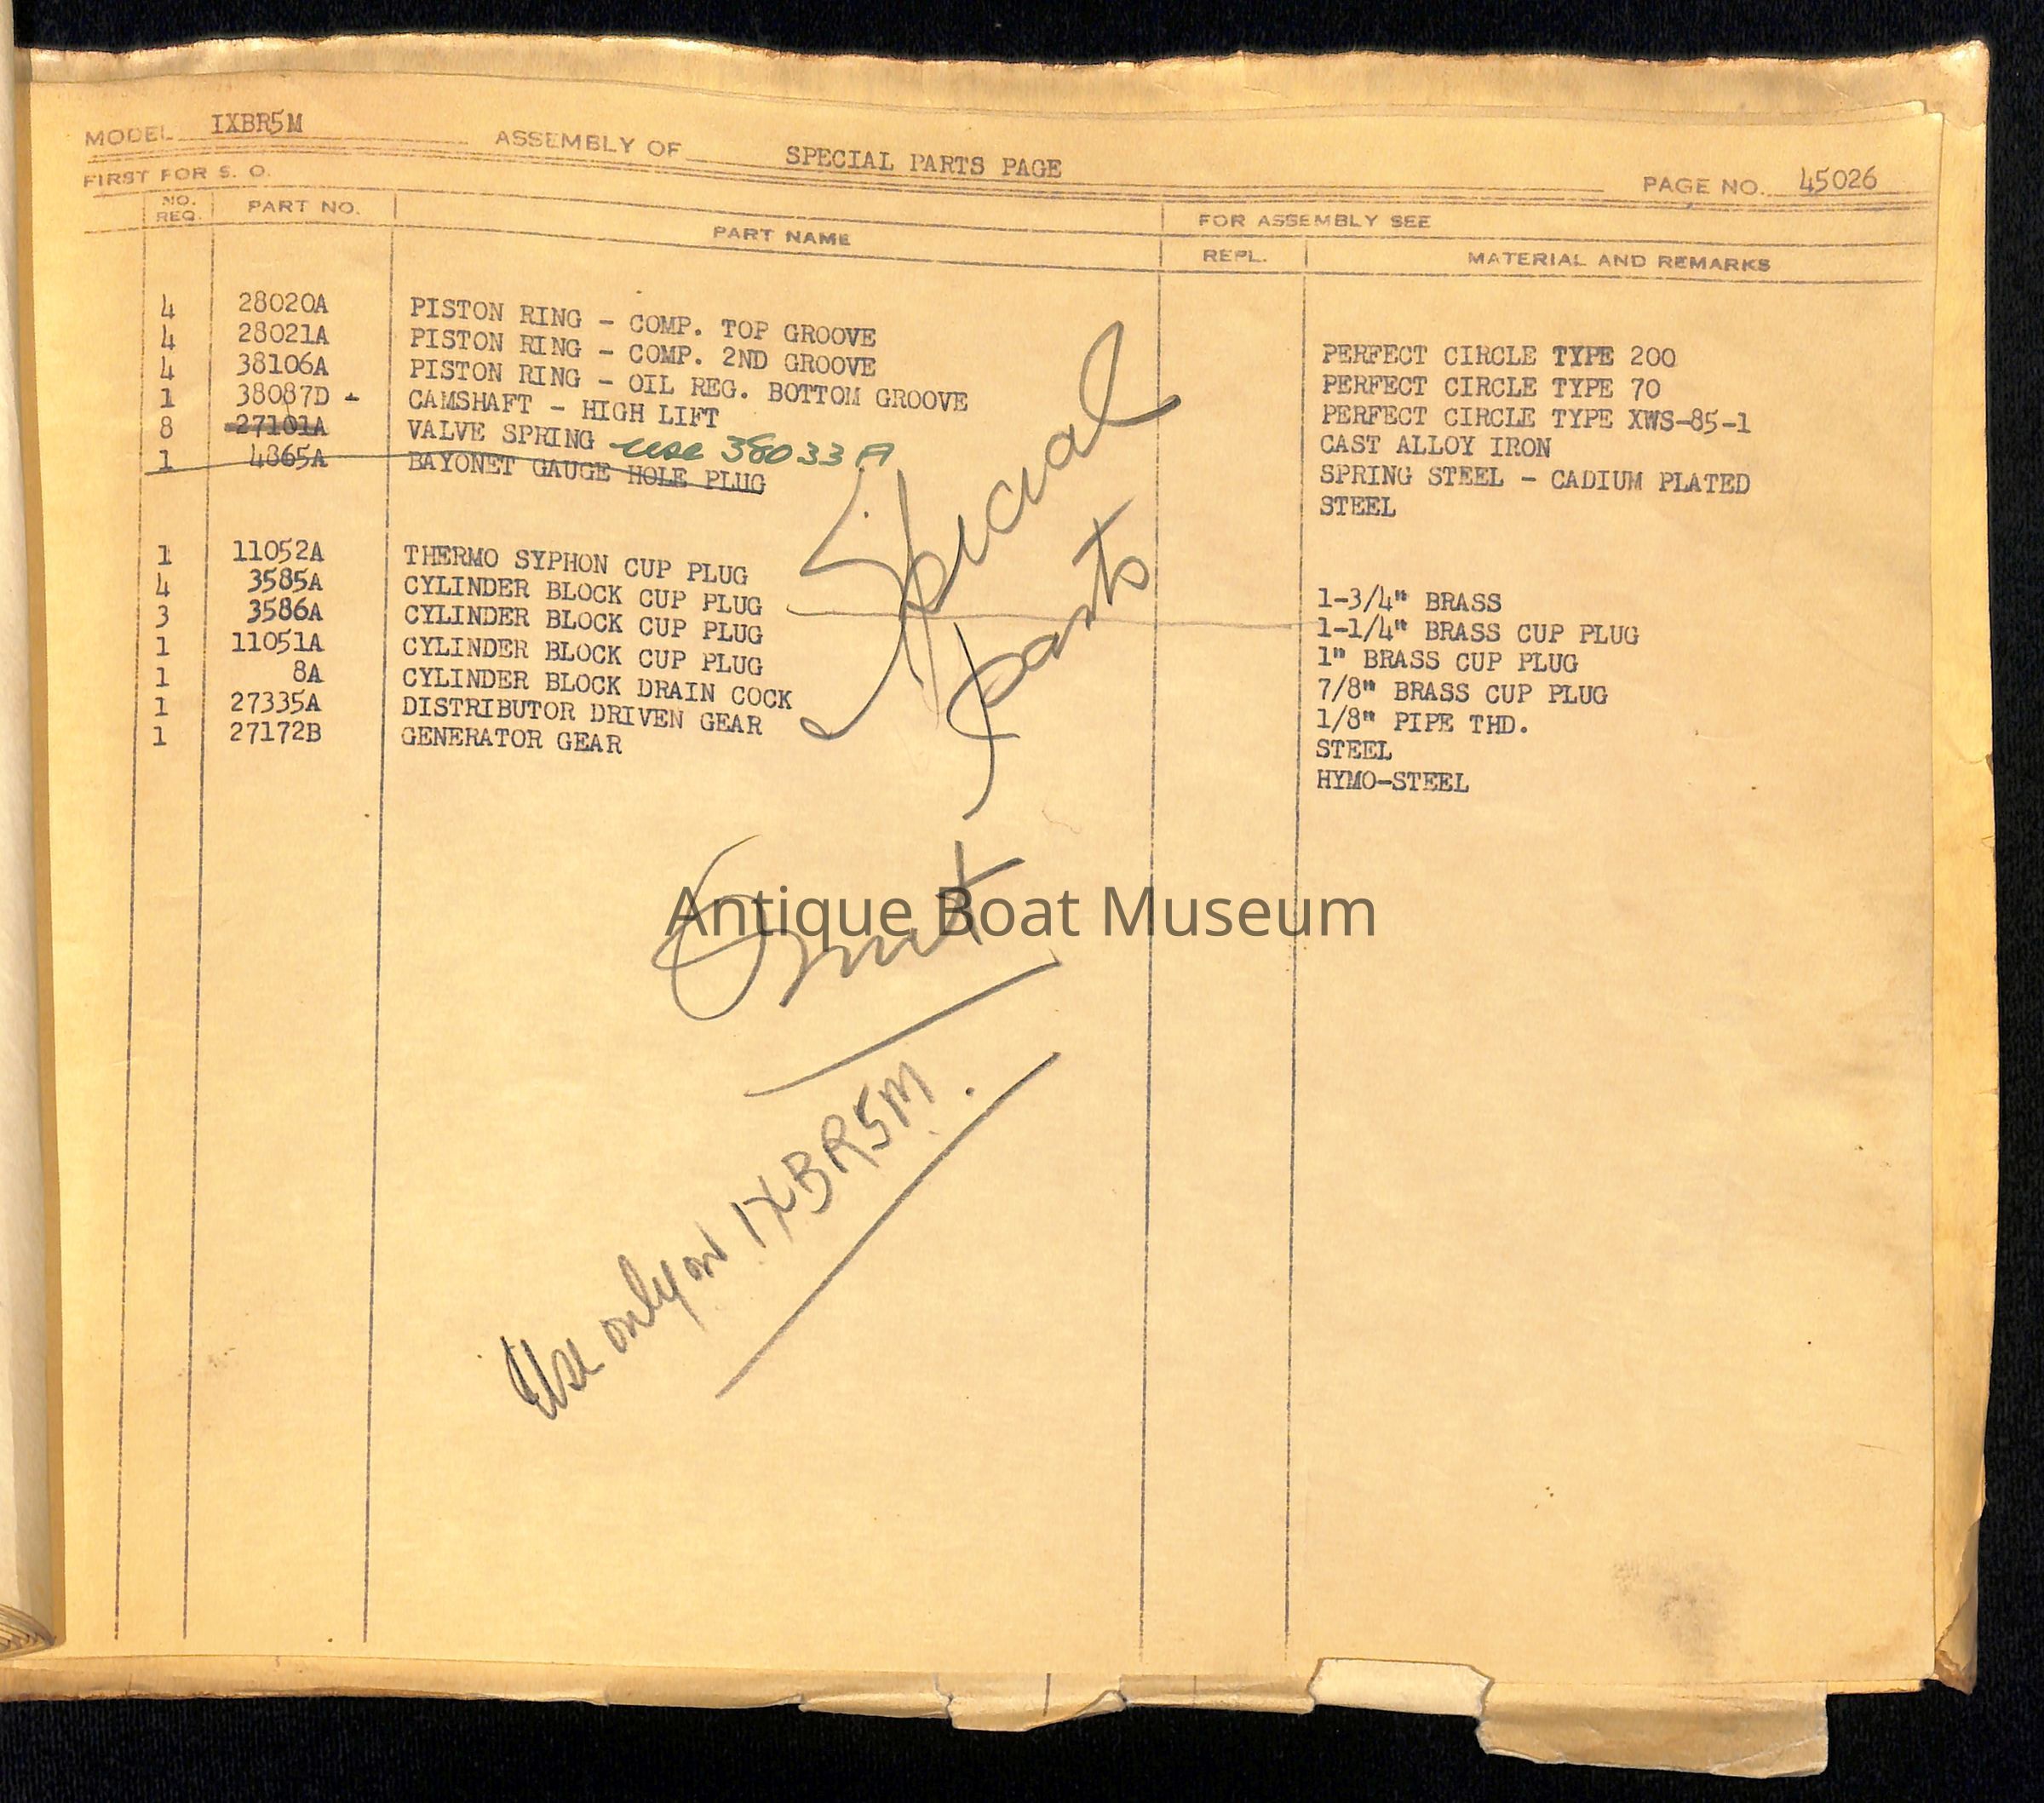 MODEL IXBR5M ASSEMBLY OF SPECIAL PARTS PAGE PAGE NO. 45026
FIRST FOR S. O.
NO. REQ. PART NO. PART NAME FOR ASSEMBLY SEE
REPL. MATERIAL AND REMARKS
4 28020A PISTON RING - COMP. TOP GROOVE PERFECT CIRCLE TYPE 200
4 28021A PISTON RING - COMP. 2ND GROOVE PERFECT CIRCLE TYPE 70
4 38106A PISTON RING - OIL REG. BOTTOM GROOVE PERFECT CIRCLE TYPE XWS-85-1
1 38087D - CAMSHAFT - HIGH LIFT CAST ALLOY IRON
8 27101A VALVE SPRING use 38033A SPRING STEEL - CADIUM PLATED
1 4865A BAYONET GAUGE HOLE PLUG STEEL
1 11052A THERMO SYPHON CUP PLUG 1-3/4" BRASS
4 3585A CYLINDER BLOCK CUP PLUG 1-1/4" BRASS CUP PLUG
3 3586A CYLINDER BLOCK CUP PLUG 1" BRASS CUP PLUG
1 11051A CYLINDER BLOCK CUP PLUG 7/8" BRASS CUP PLUG
1 8A CYLINDER BLOCK DRAIN COCK 1/8" PIPE THD.
1 27335A DISTRIBUTOR DRIVEN GEAR STEEL
1 27172B GENERATOR GEAR HYMO-STEEL
Special
parts
Omit
Antique Boat Museum
Use only on IXBR5M.